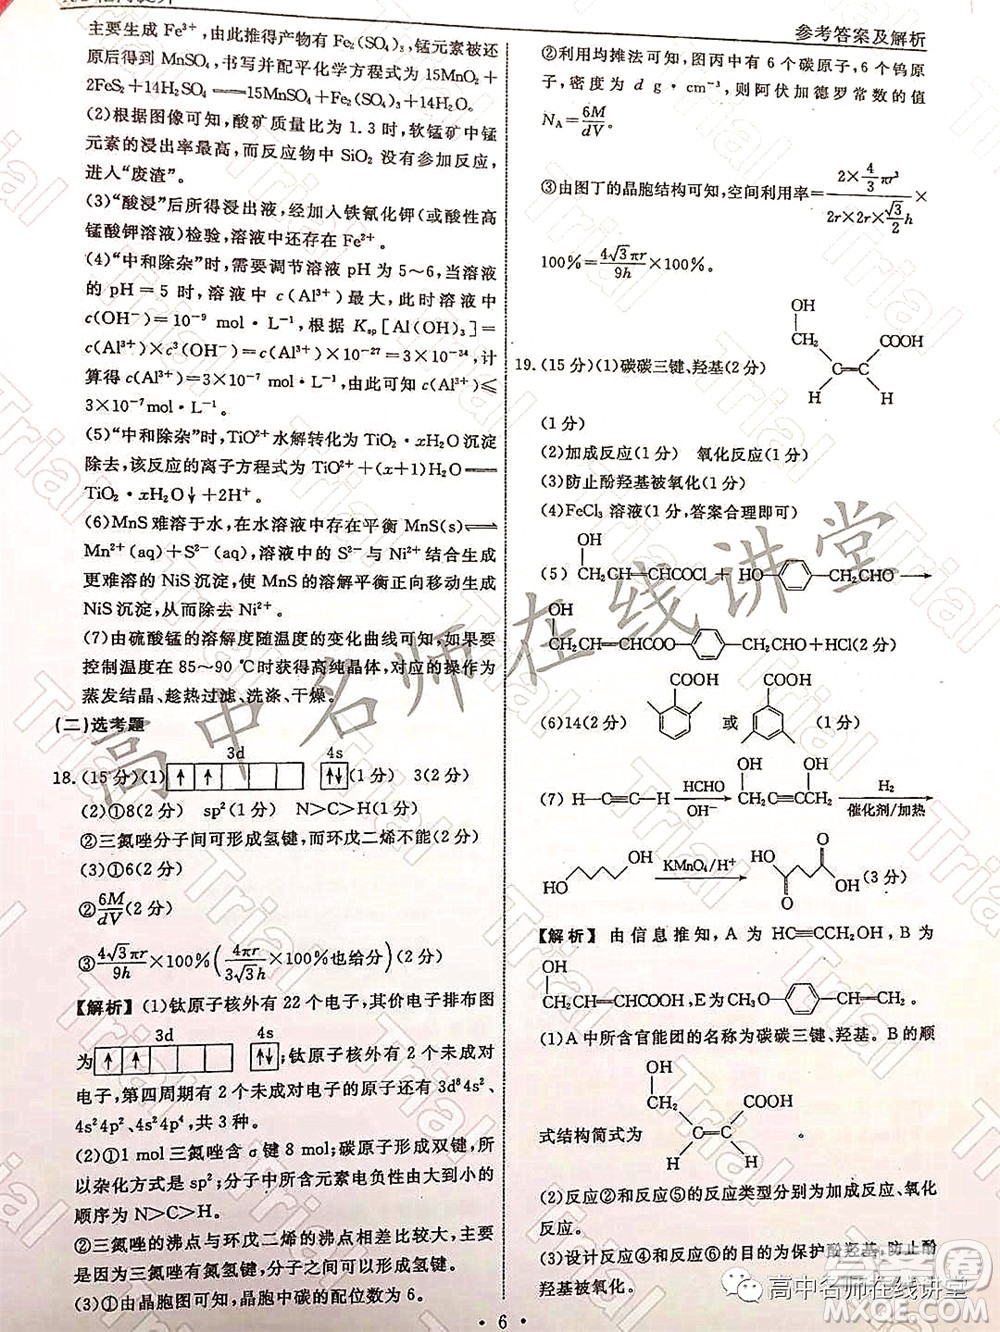 参考答案及解析
主要生成 Fe³⁺，由此推得产物有 Fe₂(SO₄)₃，锰元素被还
原后得到 MnSO₄，书写并配平化学方程式为 15MnO₂+
2FeS₂+14H₂SO₄══15MnSO₄+Fe₂(SO₄)₃+14H₂O。
(2)根据图像可知，酸矿质量比为 1.3 时，软锰矿中锰
元素的浸出率最高，而反应物中 SiO₂ 没有参加反应，
进入“废渣”。
(3)“酸浸”后所得浸出液，经加入铁氰化钾(或酸性高
锰酸钾溶液)检验，溶液中还存在 Fe²⁺。
(4)“中和除杂”时，需要调节溶液 pH 为 5～6，当溶液
的 pH=5 时，溶液中 c(Al³⁺)最大，此时溶液中
c(OH⁻)=10⁻⁹ mol·L⁻¹，根据 Kₛₚ[Al(OH)₃]=
c(Al³⁺)×c³(OH⁻)=c(Al³⁺)×10⁻²⁷=3×10⁻³⁴，计
算得 c(Al³⁺)=3×10⁻⁷mol·L⁻¹，由此可知 c(Al³⁺)≤
3×10⁻⁷mol·L⁻¹。
(5)“中和除杂”时，TiO²⁺水解转化为 TiO₂·xH₂O 沉淀
除去，该反应的离子方程式为 TiO²⁺+(x+1)H₂O══
TiO₂·xH₂O↓+2H⁺。
(6)MnS 难溶于水，在水溶液中存在平衡 MnS(s)⇌
Mn²⁺(aq)+S²⁻(aq)，溶液中的 S²⁻与 Ni²⁺结合生成
更难溶的 NiS 沉淀，MnS 的溶解平衡正向移动获得
NiS 沉淀，从而除去 Ni²⁺。
(7)由硫酸锰的溶解度随温度的变化曲线可知，如果要
控制温度在 85～90 ℃时获得高纯晶体，对应的操作为
蒸发结晶、趁热过滤、洗涤、干燥。
(二)选考题
3d 4s
18.(15 分)(1) ↑ ↑ ↑↓ 3(2 分)
(2)①8(2分) sp²(2 分) N>C>H(2 分)
②三氮唑分子间可形成氢键，而环戊二烯不能(2 分)
(3)①6(2 分)
②6M/dV(2 分)
③4√3πr/9h×100%(2 分)(4πr/3√3h×100%也给分)
【解析】(1)钛原子核外有 22 个电子，其价电子排布图
3d 4s
为 ↑ ↑ ↑↓ ；钛原子核外有 2 个未成对
电子，第四周期有 2 个未成对电子的原子还有 3d⁸4s²、
4s²4p²、4s²4p⁴，共 3 种。
(2)①1 mol 三氮唑含 σ 键 8 mol；碳原子形成双键，它
的杂化方式为 sp²；分子中所含元素电负性由大到小的
顺序为 N>C>H。
②三氮唑的沸点与环戊二烯的沸点相差比较大，主要
原因是三氮唑分子间能形成氢键，而环戊二烯不能。
(3)①由晶胞图可知，晶胞中碳的配位数为 6。
②利用均摊法可知，图丙中有 6 个碳原子，6 个钨原
子，密度为 d g·cm⁻³，则阿伏加德罗常数的值
N_A=6M/dV。
③由图丁的晶胞结构可知，空间利用率=(2×4/3πr³)/(2r×2r×√3/2h)×
100%=4√3πr/9h×100%。
19.(15 分)(1)碳碳三键、羟基(2 分) OH COOH C═C H H
(1 分)
(2)加成反应(1 分) 氧化反应(1 分)
(3)防止酚羟基被氧化(1 分)
(4)FeCl₃ 溶液(1 分，答案合理即可)
(5) OH CH₂CH═CHCOCl+HO CH₂CHO→
OH CH₂CH═CHCOO CH₂CHO+HCl(2 分)
(6)14(2 分) COOH 或 COOH (2 分)
(7) H—C≡C—H HCHO OH⁻ OH OH H₂ 催化剂/加热
OH HO KMnO₄/H⁺ HO O O OH (3 分)
【解析】由信息推知，A 为 HC≡CCH₂OH，B 为
OH CH₂CH═CHCOOH，E 为 CH₃O CH₂CH═CH₂。
(1)A 中所含官能团的名称为碳碳三键、羟基。B 的顺
式结构简式为 OH COOH C═C H H 。
(2)反应②和反应⑤的反应类型分别为加成反应、氧化
反应。
(3)设计反应④和反应⑥的目的为保护酚羟基，防止酚
羟基被氧化。
· 6 ·
高中名师在线讲堂
Trial
高中名师在线讲堂
答案圈
MXQE.COM